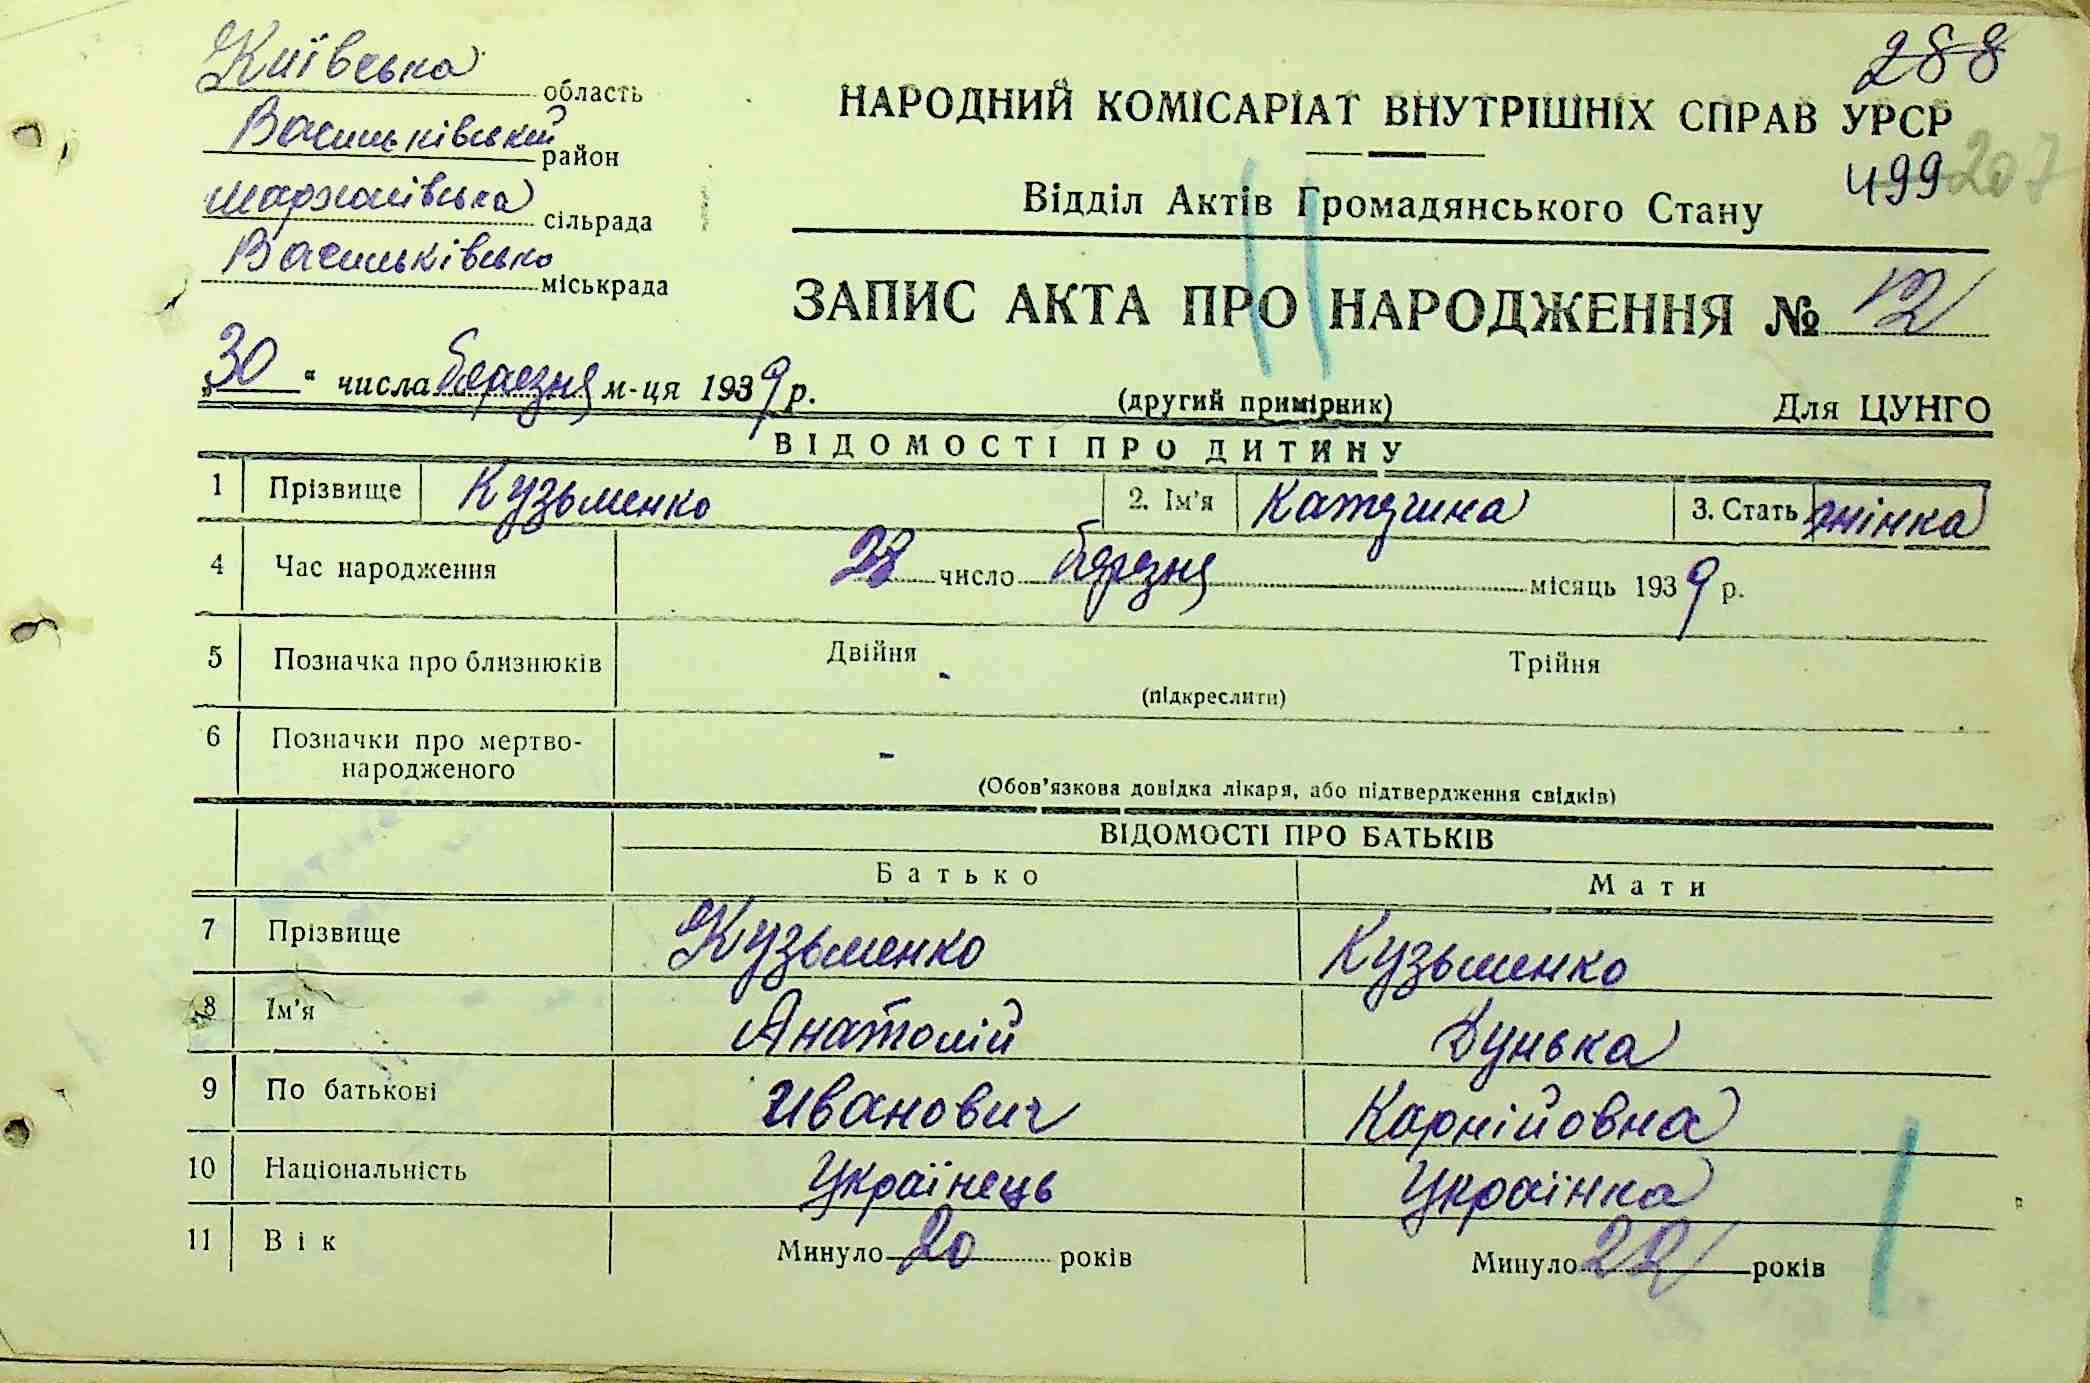 Київська область
288
НАРОДНИЙ КОМІСАРІАТ ВНУТРІШНІХ СПРАВ УРСР
Васильківський район
499 207
Відділ Актів Громадянського Стану
сільрада
Васильківська міськрада
ЗАПИС АКТА ПРО НАРОДЖЕННЯ № 12
„30“ числа березня м-ця 1939 р.
(другий примірник)
Для ЦУНГО
ВІДОМОСТІ ПРО ДИТИНУ
1 Прізвище Кузьменко 2. Ім'я Катерина 3. Стать жінка
4 Час народження число березня місяць 1939 р.
5 Позначка про близнюків Двійня - Трійня
(підкреслити)
6 Позначки про мертвонародженого -
(Обов'язкова довідка лікаря, або підтвердження свідків)
ВІДОМОСТІ ПРО БАТЬКІВ
Батько Мати
7 Прізвище Кузьменко Кузьменко
8 Ім'я Анатолій Дунька
9 По батькові Иванович Карнійовна
10 Національність Українець Українка
11 Вік Минуло 20 років Минуло 22 років